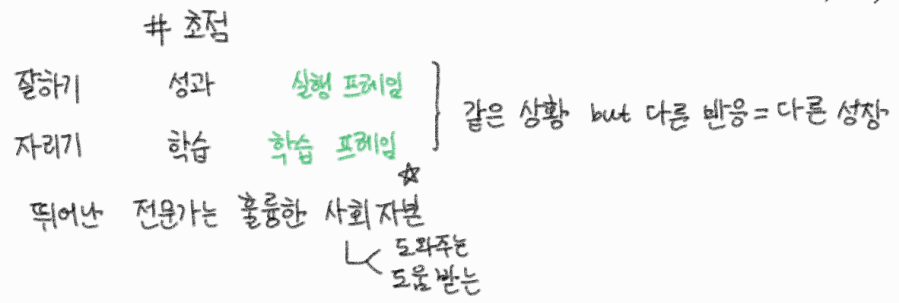 # 초점
잘하기 성과 실행 프레임
자라기 학습 학습 프레임
같은 상황 but 다른 반응 = 다른 성장
☆
뛰어난 전문가는 훌륭한 사회자본
도와주는
도움받는